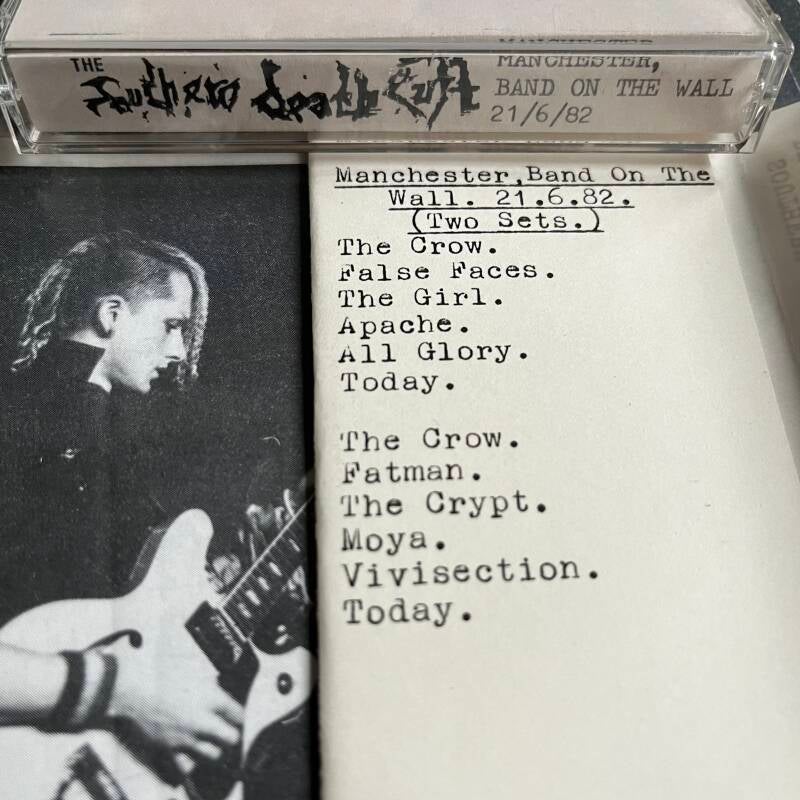 THE Southern death Cult
MANCHESTER,
BAND ON THE WALL
21/6/82
Manchester,Band On The
Wall. 21.6.82.
(Two Sets.)
The Crow.
False Faces.
The Girl.
Apache.
All Glory.
Today.
The Crow.
Fatman.
The Crypt.
Moya.
Vivisection.
Today.